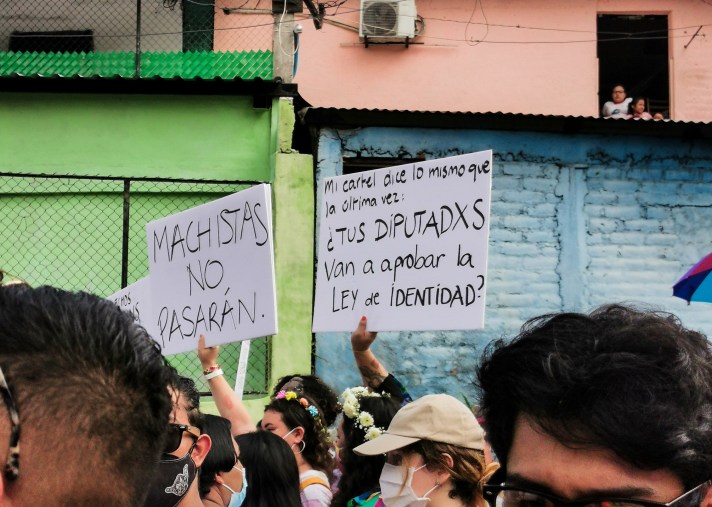 MACHISTAS
NO
PASARÁN.
Mi cartel dice lo mismo que
la última vez:
¿TUS DIPUTADXS
van a aprobar la
LEY de IDENTIDAD?